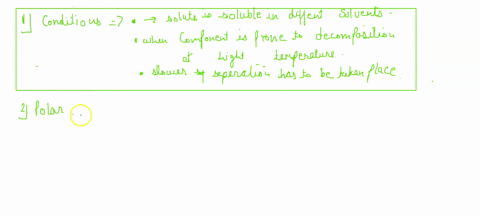 1] Conditions => • → solute is soluble in diffent solvents.
• when Component is prone to decomposition
at hight temperature.
• slower seperation has to be taken place.
2] Polar